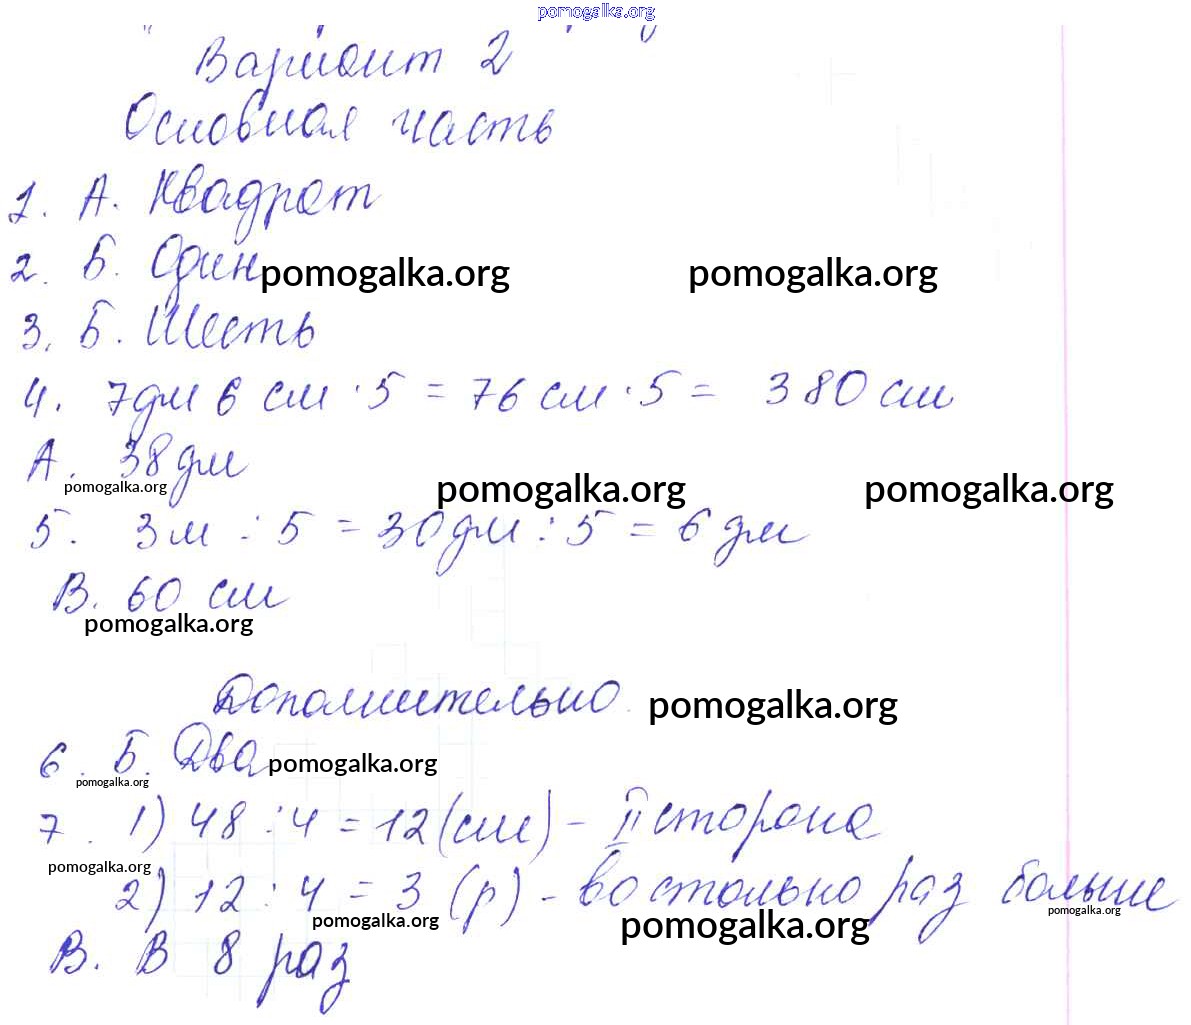 pomogalka.org
Вариант 2
Основная часть
1. А. Квадрат
2. Б. Один pomogalka.org pomogalka.org
3. Б. Шесть
4. 7дм 6 см · 5 = 76 см · 5 = 380 см
А. 38 дм
pomogalka.org pomogalka.org pomogalka.org
5. 3 м : 5 = 30 дм : 5 = 6 дм
В. 60 см
pomogalka.org
Дополнительно pomogalka.org
6. Б. Два pomogalka.org
pomogalka.org
7. 1) 48 : 4 = 12 (см) – II сторона
pomogalka.org
2) 12 : 4 = 3 (р) – во столько раз больше
pomogalka.org pomogalka.org pomogalka.org
В. В 8 раз